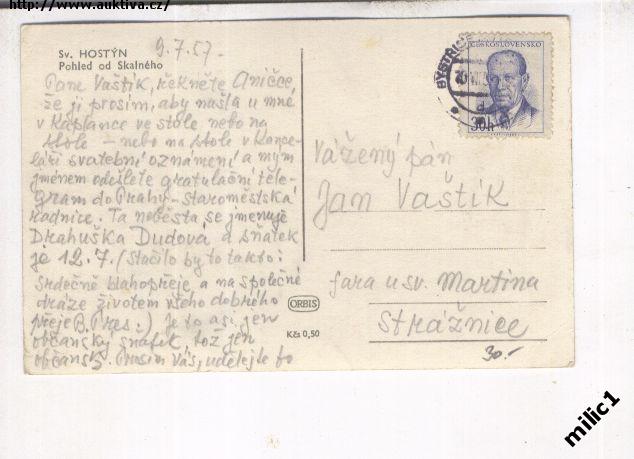 http://www.auktiva.cz/
Sv. HOSTÝN
Pohled od Skalného
9.7.57.
Pane Vaštík, řekněte Aničce,
že ji prosím, aby našla u mne
v kaplance ve stole nebo na
stole – nebo na stole v kance-
láři svatební oznámení a mým
jménem odešlete gratulační tele-
gram do Prahy – Staroměstská
radnice. Ta nevěsta se jmenuje
Drahuška Dudová a sňatek
je 12.7. (Stačilo by to takto:
Srdečně blahopřeje a na společné
dráze životem všeho dobrého
přeje B. Pres.) Je to asi jen
občanský sňatek, tož jen
občansky. Prosím Vás, udělejte to
ORBIS
Kčs 0,50
BYSTŘICE
ČESKOSLOVENSKO
30h
Vážený pán
Jan Vaštík
fara u sv. Martina
Strážnice
30.-
milic1